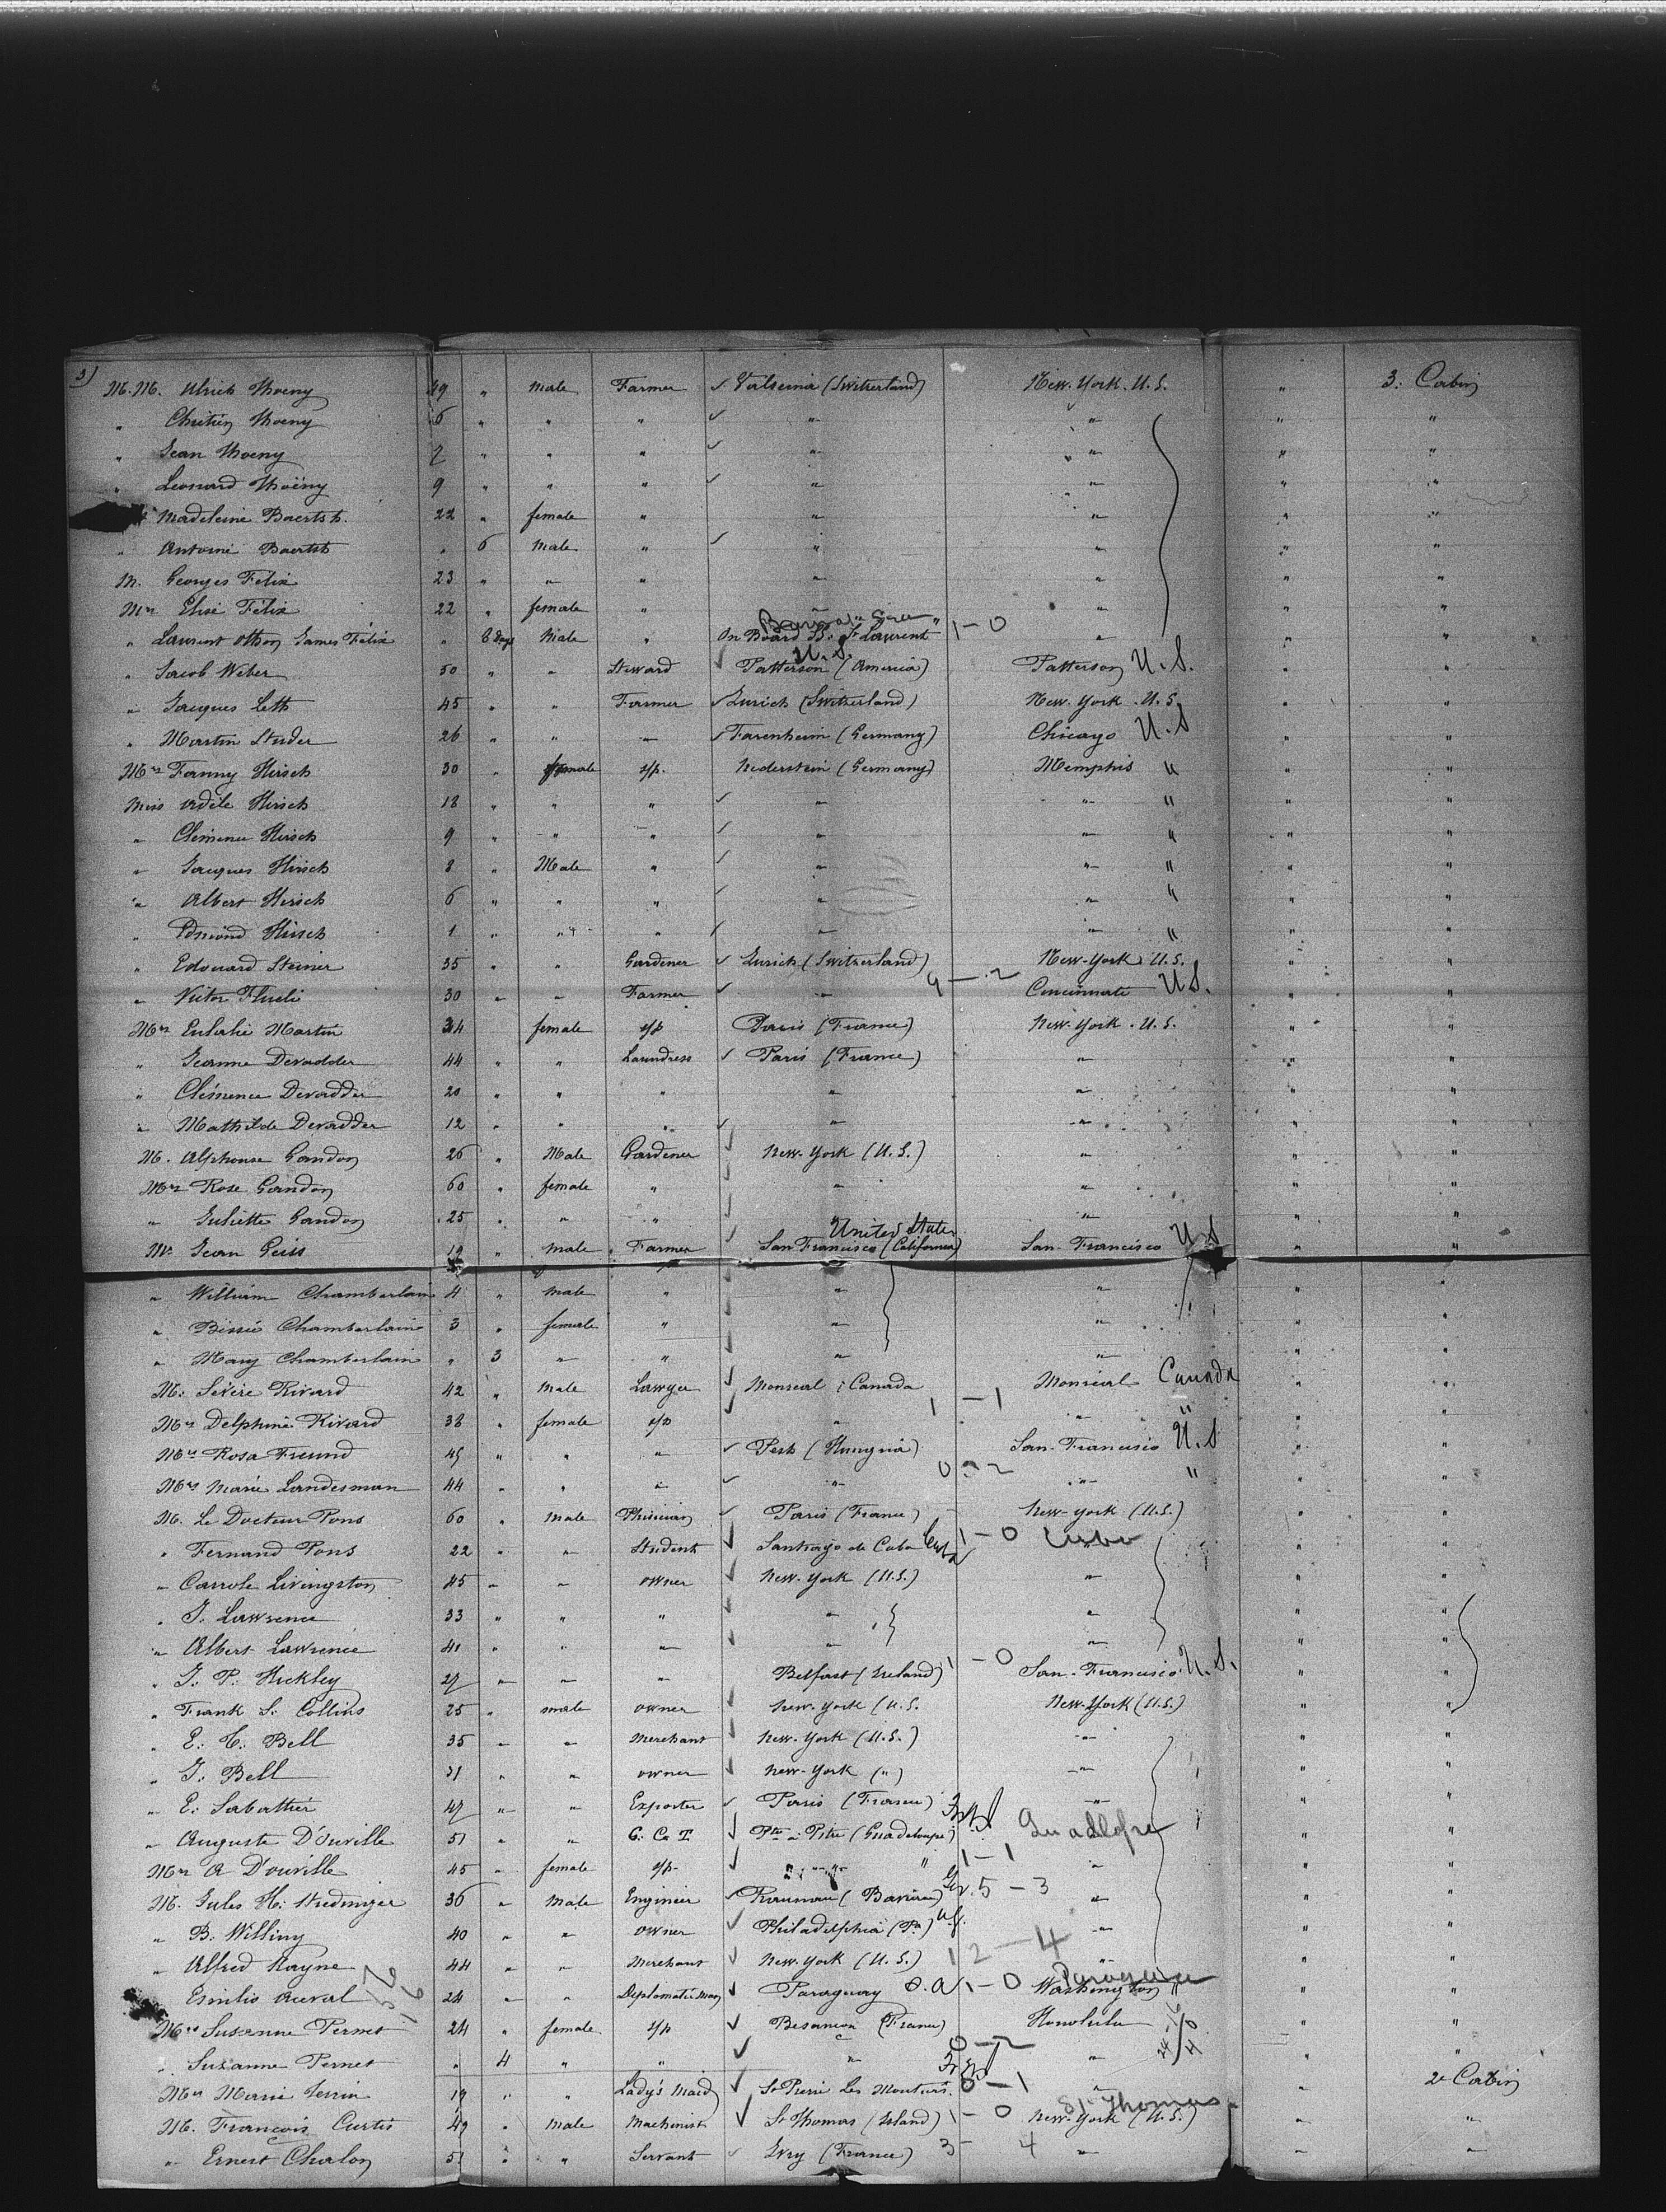 3)
M.M. Ulrich Thoeny 49 " male Farmer ✓ (Switzerland) New-York. U.S. " 3: Cabin
" Chrétien Thoeny 6 " " " ✓ " " " "
" Jean Thoeny 7 " " " ✓ " " " "
" Leonard Thoëny 9 " " " ✓ " " " "
" Madeleine Baertsh. 22 " female " " " " "
" Antoine Baertsh " 6 Male " ✓ " " " "
M. Georges Félix 23 " " " " " " "
Mrs Elise Félix 22 " female " " " " "
" Laurent Othon James Félix " 8 days Male " On Board SS. St Laurent 1-0 " " "
U.S.
" Jacob Weber 50 " " Steward ✓ Patterson (America) Patterson U.S. " "
" Jacques Leth 45 " " Farmer ✓ Zurich (Switzerland) New-York. U.S. " "
" Martin Studer 26 " " " ✓ Farenheim (Germany) Chicago U.S " "
Mrs Fanny Hirsch 30 " female s/p. Nederstein (Germany) Memphis " " "
Miss Adèle Hirsch 18 " " " ✓ " " " " "
" Clémence Hirsch 9 " " " ✓ " " " " "
" Jacques Hirsch 8 " Male " ✓ " " " " "
" Albert Hirsch 6 " " " ✓ " " " " "
" Edmond Hirsch 1 " " " ✓ " " " " "
" Edouard Steiner 35 " " Gardener ✓ Zurich (Switzerland) New-York. U.S. " "
" Victor Flueli 30 " " Farmer ✓ " 9-2 Cincinnati U.S. " "
Mrs Eulalie Martin 34 female s/p Paris (France) New-York. U.S. " "
" Jeanne Devadder 44 " " Laundress ✓ Paris (France) " " "
" Clémence Devadder 20 " " " " " " "
" Mathilde Devadder 12 " " " ✓ " " " "
M. Alphonse Gandon 26 " Male Gardener ✓ New-York (U.S.) " " "
Mrs Rose Gandon 60 " female " ✓ " " " "
" Juliette Gandon 25 " " " ✓ " " " "
United States
Mr Jean Geiss 19 " male Farmer ✓ San Francisco (California) San-Francisco U.S " "
" William Chamberlain 4 " male " ✓ " " " "
" Bissie Chamberlain 3 " female " ✓ " " " "
" Mary Chamberlain " 3 " " ✓ " " " "
M. Sévère Rivard 42 " male Lawyer ✓ Monreal : Canada Monreal Canada " "
Mrs Delphine Rivard 38 " female s/p ✓ " 1-1 " " " "
Mrs Rosa Freund 45 " " " ✓ Pest (Hungria) San-Francisco U.S " "
Mrs Marie Landesman 44 " " " ✓ " 0-2 " " " "
M. Le Docteur Pons 60 " male Phisician ✓ Paris (France) New-york (U.S.) " "
" Fernand Pons 22 " " Student ✓ Santiago de Cuba Cuba 1-0 Cuba " "
" Carrole Livingston 45 " " owner ✓ New-York (U.S.) " " "
" J. Lawrence 33 " " " ✓ " " " "
" Albert Lawrence 41 " " " ✓ " " " "
" J. P. Hickley 27 " " " Belfast (Ireland) 1-0 San-Francisco U.S. " "
" Frank S. Collins 25 " male owner ✓ New-York (U.S. New-York (U.S.) " "
" E. C. Bell 35 " " Merchant ✓ New-York (U.S.) " " "
" J. Bell 31 " " owner ✓ New-York (") " " "
" E. Sabattier 47 " " Exporter ✓ Paris (France) " " "
" Auguste D'ouville 51 " " C. Ca T. ✓ Pte à Pitre (Guadeloupe) Guadlope " "
Mrs A D'ouville 45 " female s/p. ✓ " " 1-1 " " "
M. Jules H. Stedinger 36 " Male Engineer ✓ (Bavière) Ger. 5-3 " " "
" B. Williny 40 " " owner ✓ Philadelphia (Pa) U.S. " " "
" Alfred Rayne 44 " " Merchant ✓ New-York (U.S.) 12-4 " " "
Paraguay
Emilio 24 " " ✓ Paraguay S.A. 1-0 Washington " "
Mrs Susanne Pernet 24 " female s/p ✓ Besancon (France) Honolulu " "
" Suzanne Pernet " 4 " " ✓ " 0-2 " " "
Mrs Marie 19 " " Lady's Maid ✓ St Pierre Les 0-1 " " 2e Cabin
St Thomas
M. François Curtis 49 " male Machinist ✓ St Thomas (Island) 1-0 New-York (U.S.) " "
" Ernest Chalon 51 " " Servant ✓ Ivry (France) 3-4 " " "